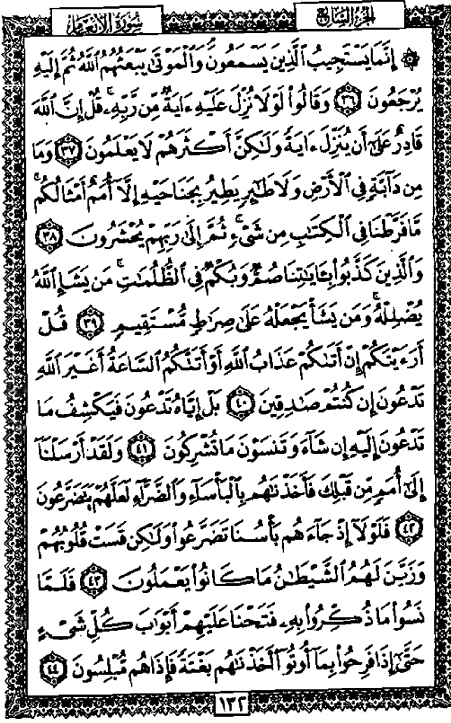 الجزء السابع
سورة الأنعام
۞ إِنَّمَا يَسْتَجِيبُ ٱلَّذِينَ يَسْمَعُونَ وَٱلْمَوْتَىٰ يَبْعَثُهُمُ ٱللَّهُ ثُمَّ إِلَيْهِ
يُرْجَعُونَ ٣٦ وَقَالُوا۟ لَوْلَا نُزِّلَ عَلَيْهِ ءَايَةٌ مِّن رَّبِّهِۦ قُلْ إِنَّ ٱللَّهَ
قَادِرٌ عَلَىٰٓ أَن يُنَزِّلَ ءَايَةً وَلَٰكِنَّ أَكْثَرَهُمْ لَا يَعْلَمُونَ ٣٧ وَمَا
مِن دَآبَّةٍ فِى ٱلْأَرْضِ وَلَا طَٰٓئِرٍ يَطِيرُ بِجَنَاحَيْهِ إِلَّآ أُمَمٌ أَمْثَالُكُم
مَّا فَرَّطْنَا فِى ٱلْكِتَٰبِ مِن شَىْءٍ ثُمَّ إِلَىٰ رَبِّهِمْ يُحْشَرُونَ ٣٨
وَٱلَّذِينَ كَذَّبُوا۟ بِـَٔايَٰتِنَا صُمٌّ وَبُكْمٌ فِى ٱلظُّلُمَٰتِ مَن يَشَإِ ٱللَّهُ
يُضْلِلْهُ وَمَن يَشَأْ يَجْعَلْهُ عَلَىٰ صِرَٰطٍ مُّسْتَقِيمٍ ٣٩ قُلْ
أَرَءَيْتَكُمْ إِنْ أَتَىٰكُمْ عَذَابُ ٱللَّهِ أَوْ أَتَتْكُمُ ٱلسَّاعَةُ أَغَيْرَ ٱللَّهِ
تَدْعُونَ إِن كُنتُمْ صَٰدِقِينَ ٤٠ بَلْ إِيَّاهُ تَدْعُونَ فَيَكْشِفُ مَا
تَدْعُونَ إِلَيْهِ إِن شَآءَ وَتَنسَوْنَ مَا تُشْرِكُونَ ٤١ وَلَقَدْ أَرْسَلْنَآ
إِلَىٰٓ أُمَمٍ مِّن قَبْلِكَ فَأَخَذْنَٰهُم بِٱلْبَأْسَآءِ وَٱلضَّرَّآءِ لَعَلَّهُمْ يَتَضَرَّعُونَ
٤٢ فَلَوْلَآ إِذْ جَآءَهُم بَأْسُنَا تَضَرَّعُوا۟ وَلَٰكِن قَسَتْ قُلُوبُهُمْ
وَزَيَّنَ لَهُمُ ٱلشَّيْطَٰنُ مَا كَانُوا۟ يَعْمَلُونَ ٤٣ فَلَمَّا
نَسُوا۟ مَا ذُكِّرُوا۟ بِهِۦ فَتَحْنَا عَلَيْهِمْ أَبْوَٰبَ كُلِّ شَىْءٍ
حَتَّىٰٓ إِذَا فَرِحُوا۟ بِمَآ أُوتُوٓا۟ أَخَذْنَٰهُم بَغْتَةً فَإِذَا هُم مُّبْلِسُونَ ٤٤
١٣٢